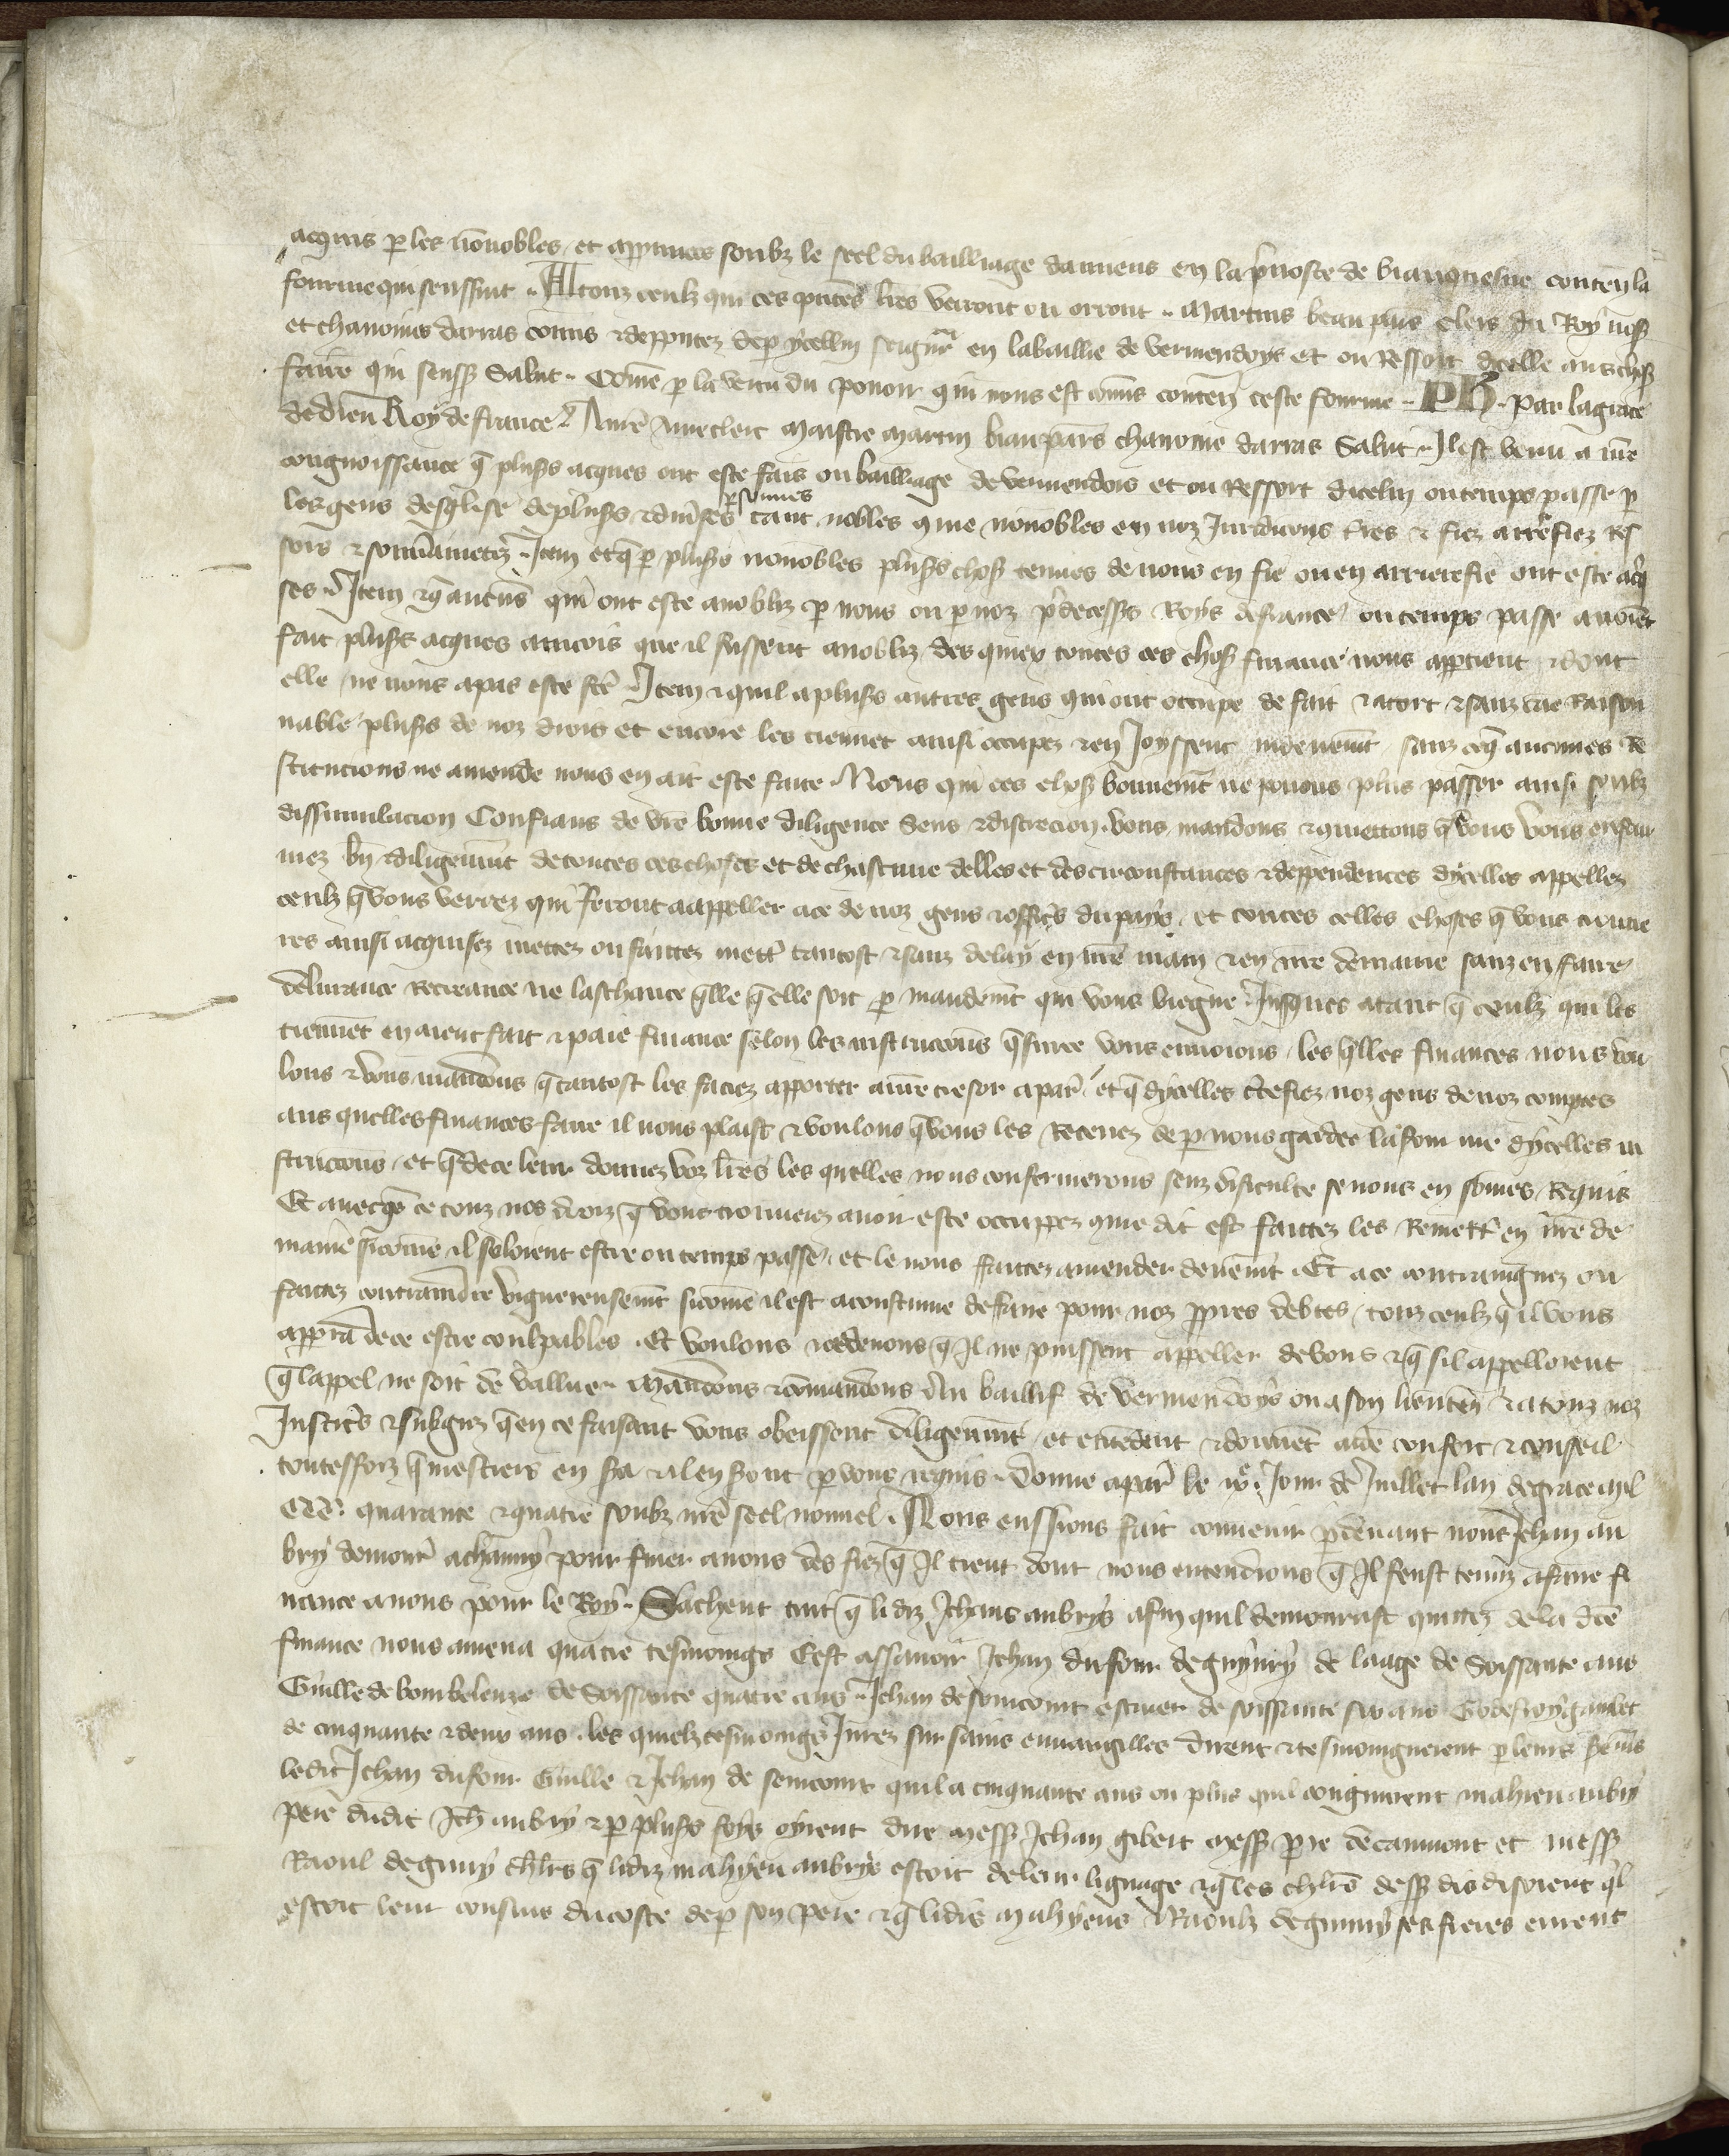 acquis p les nonobles et appruues soubz le seel du bailliage damiens en la puoste de biauquesne conten la
fourme qui sensuit .. A touz ceulx qui ces pntes lres verront ou orront .. Martins beau pais clers du Roy nos
et chanoines darras comis & depputez de p ycellui seignr en la baillie de vermendoys et ou Ressort dicelle aus choses
faire qui senss Salut .. Come p la vertu du pouoir qui nous est comis conten ceste fourme .. PH. Par la grace
de dieu Roy de france A nre ame clerc Maistre Martin biaupars chanoine darras Salut .. Il est venu a nre
congnoissance q pluss acques ont este fais ou bailliage de vermendois et ou Ressort dicelui ou temps passe p
les gens deglise de pluss & diuses psonnes tant nobles qme nonobles en noz Juridicions fres & fiez arrefiez res
sors & souuainetez .. Item et q p pluss nonobles pluss choses tenues de nous en fie ou en arrierefie ont este acq
ses .. Item & q aucuns qui ont este anobliz p nous ou p noz pdecesses Roys de france ou temps passe auoient
fait pluss acques aincois que il fussent anobliz des quiex toutes ces choses finance nous apptient & dont
elle ne nous a pas este fce .. Item & quil a pluss autres gens qui ont occupe de fait & a tort & sanz cae Raison
nable pluss de noz drois et encore les tiennet ainsi occupez & en Joyssent indeuemt sanz ce q aucunes Re
stitucions ne amende nous en ait este faite . Nous qui ces choses bonnemt ne pouons plus passer ainsi soubz
dissimulacion Confians de vre bonne diligence Sens & discrecion . vous mandons & qmettons q vous vous enfour
mez bn & diligemnt de toutes ces choses et de chascune delles et des circonstances & deppendences dycelles appellez
ceulz q vous verrez qui seront a appeller a ce de noz gens & offics du pays . et toutes celles choses q vous trouue
res ainsi acquises mettez ou faictes mett tantost & sanz delay en nre main & en nre demaine sanz en faire
deliurance Recreance ne laschance qlle qelle soit p mandemt qui vous viegne . Jusques a tant q ceulz qui les
tiennet en aient fait & paie finance selon les instruccons q sur ce vous enuoions . les qlles finances nous vou
lons & vous mandons q tantost les faciez apporter a nre tresor a pars . et q dycelles ctefiez noz gens de noz comptes
aus quelles finances faire il nous plaist & voulons q vous les Receuez de p nous gardee la fourme dycelles in
struccons . et q de ce leur donnez voz lres les quelles nous confermerons senz dificulte se nous en somes Requis
Et auecqs ce touz nos drois q vous trouuerez auoir este occuppez qme dit est faittes les Remett en nre de
maine sicome il soloient estre ou temps passe . et le nous faittez amender deuemt . Et a ce contraingnez ou
faittez contraindre viguereusemt sicome il est acoustume de faire pour noz ppres debtes . touz ceulz q il vous
apprra de ce estre coulpables . Et voulons & ordenons q Il ne puissent appeller de vous & q sil appelloient
q lappel ne soit de vallue .. Mandons & comandons Au baillif de vermendoys ou a son lieuten & a touz noz
Justics & subgiez q en ce faisant vous obeissent diligemmt et entendent & donnet aide confort & conseil
toutesfoiz q mestiers en sa & il en sont p vous requis .. Donne a pars le Jour de Juillet lan de grace mil
CCC quarante & quatre soubz nre seel nouuel . Nous eussions fait conuenir pdeuant nous Jehan au
bry demour a chauny pour finer a nous des fiez q Il tient dont nous entendions q Il feust tenuz a faire fi
nance a nous pour le Roy .. Sachent tuit q lidiz Jehans aubrys afin quil demourast quittes de la dce
finance nous amena quatre tesmoings Cest assauoir Jehan dufour de guyury de laage de Soissante ans
Guille de bombeleuze de Soissante quatre ans .. Jehan de semcourt escuier de soissante six ans Godefroy gambet
de cinquante & deux ans . les quielx tesmoings Jurez sur sains euuangilles dirent & tesmoingnerent p leurs semens
ledit Jehan dufour Guille & Jehan de semcourt quil a cinquante ans ou plus quil congnurent mahieu aubry
pere dudit Jeh aubry & p pluss foys oyrent dire mess Jehan gibert mess pre de caumont et mess
Raoul de gruny chlrs q lidiz mahyeu aubrys estoit de leur lignage & q les chlrs dess dis disoient ql
estoit leur cousins du coste de p son pere & q lidis mahyeus & Raoulz de gruny ses freres eurent